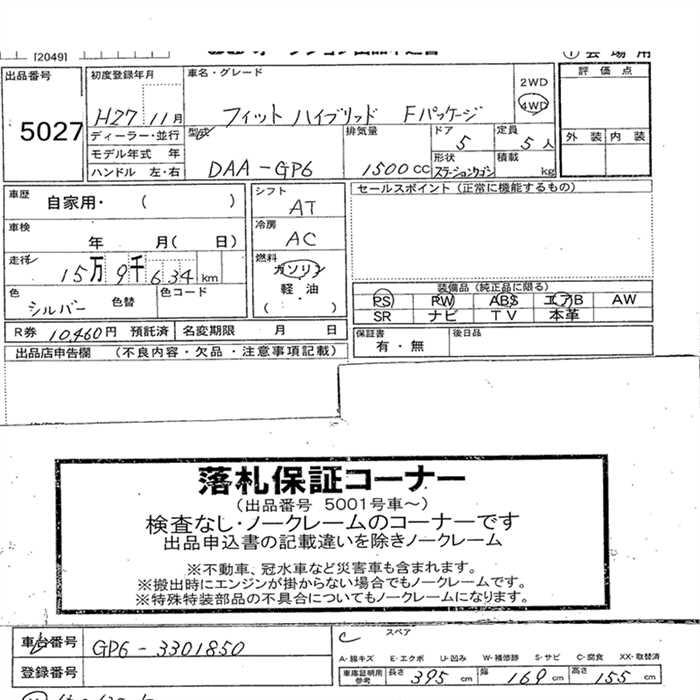 [2049]
出品番号 初度登録年月 車名・グレード 2WD 評価点
5027 H27 11月 フィット ハイブリッド Fパッケージ 4WD
ディーラー・並行 型式 排気量 ドア 定員 外装 内装
モデル年式 年 5 5人
ハンドル 左・右 DAA-GP6 1500cc 形状 ステーションワゴン 積載 kg
車歴 自家用・( ) シフト AT セールスポイント(正常に機能するもの)
車検 年 月( 日) 冷房 AC
走行 15万9千634km 燃料 ガソリン
軽油
( ・ )
色 シルバー 色替 色コード
装備品(純正品に限る)
PS PW ABS エアB AW
SR ナビ TV 本革
R券 10,460円 預託済 名変期限 月 日 保証書 有・無 後日品
出品店申告欄 (不良内容・欠品・注意事項記載)
落札保証コーナー
(出品番号 5001号車~)
検査なし・ノークレームのコーナーです
出品申込書の記載違いを除きノークレーム
※不動車、冠水車など災害車も含まれます。
※搬出時にエンジンが掛からない場合でもノークレームです。
※特殊特装部品の不具合についてもノークレームになります。
車台番号 GP6-3301850 スペア
A-線キズ E-エクボ U-凹み W-補修跡 S-サビ C-腐食 XX-取替済
登録番号 車庫証明用参考 長さ 395cm 幅 169cm 高さ 155cm